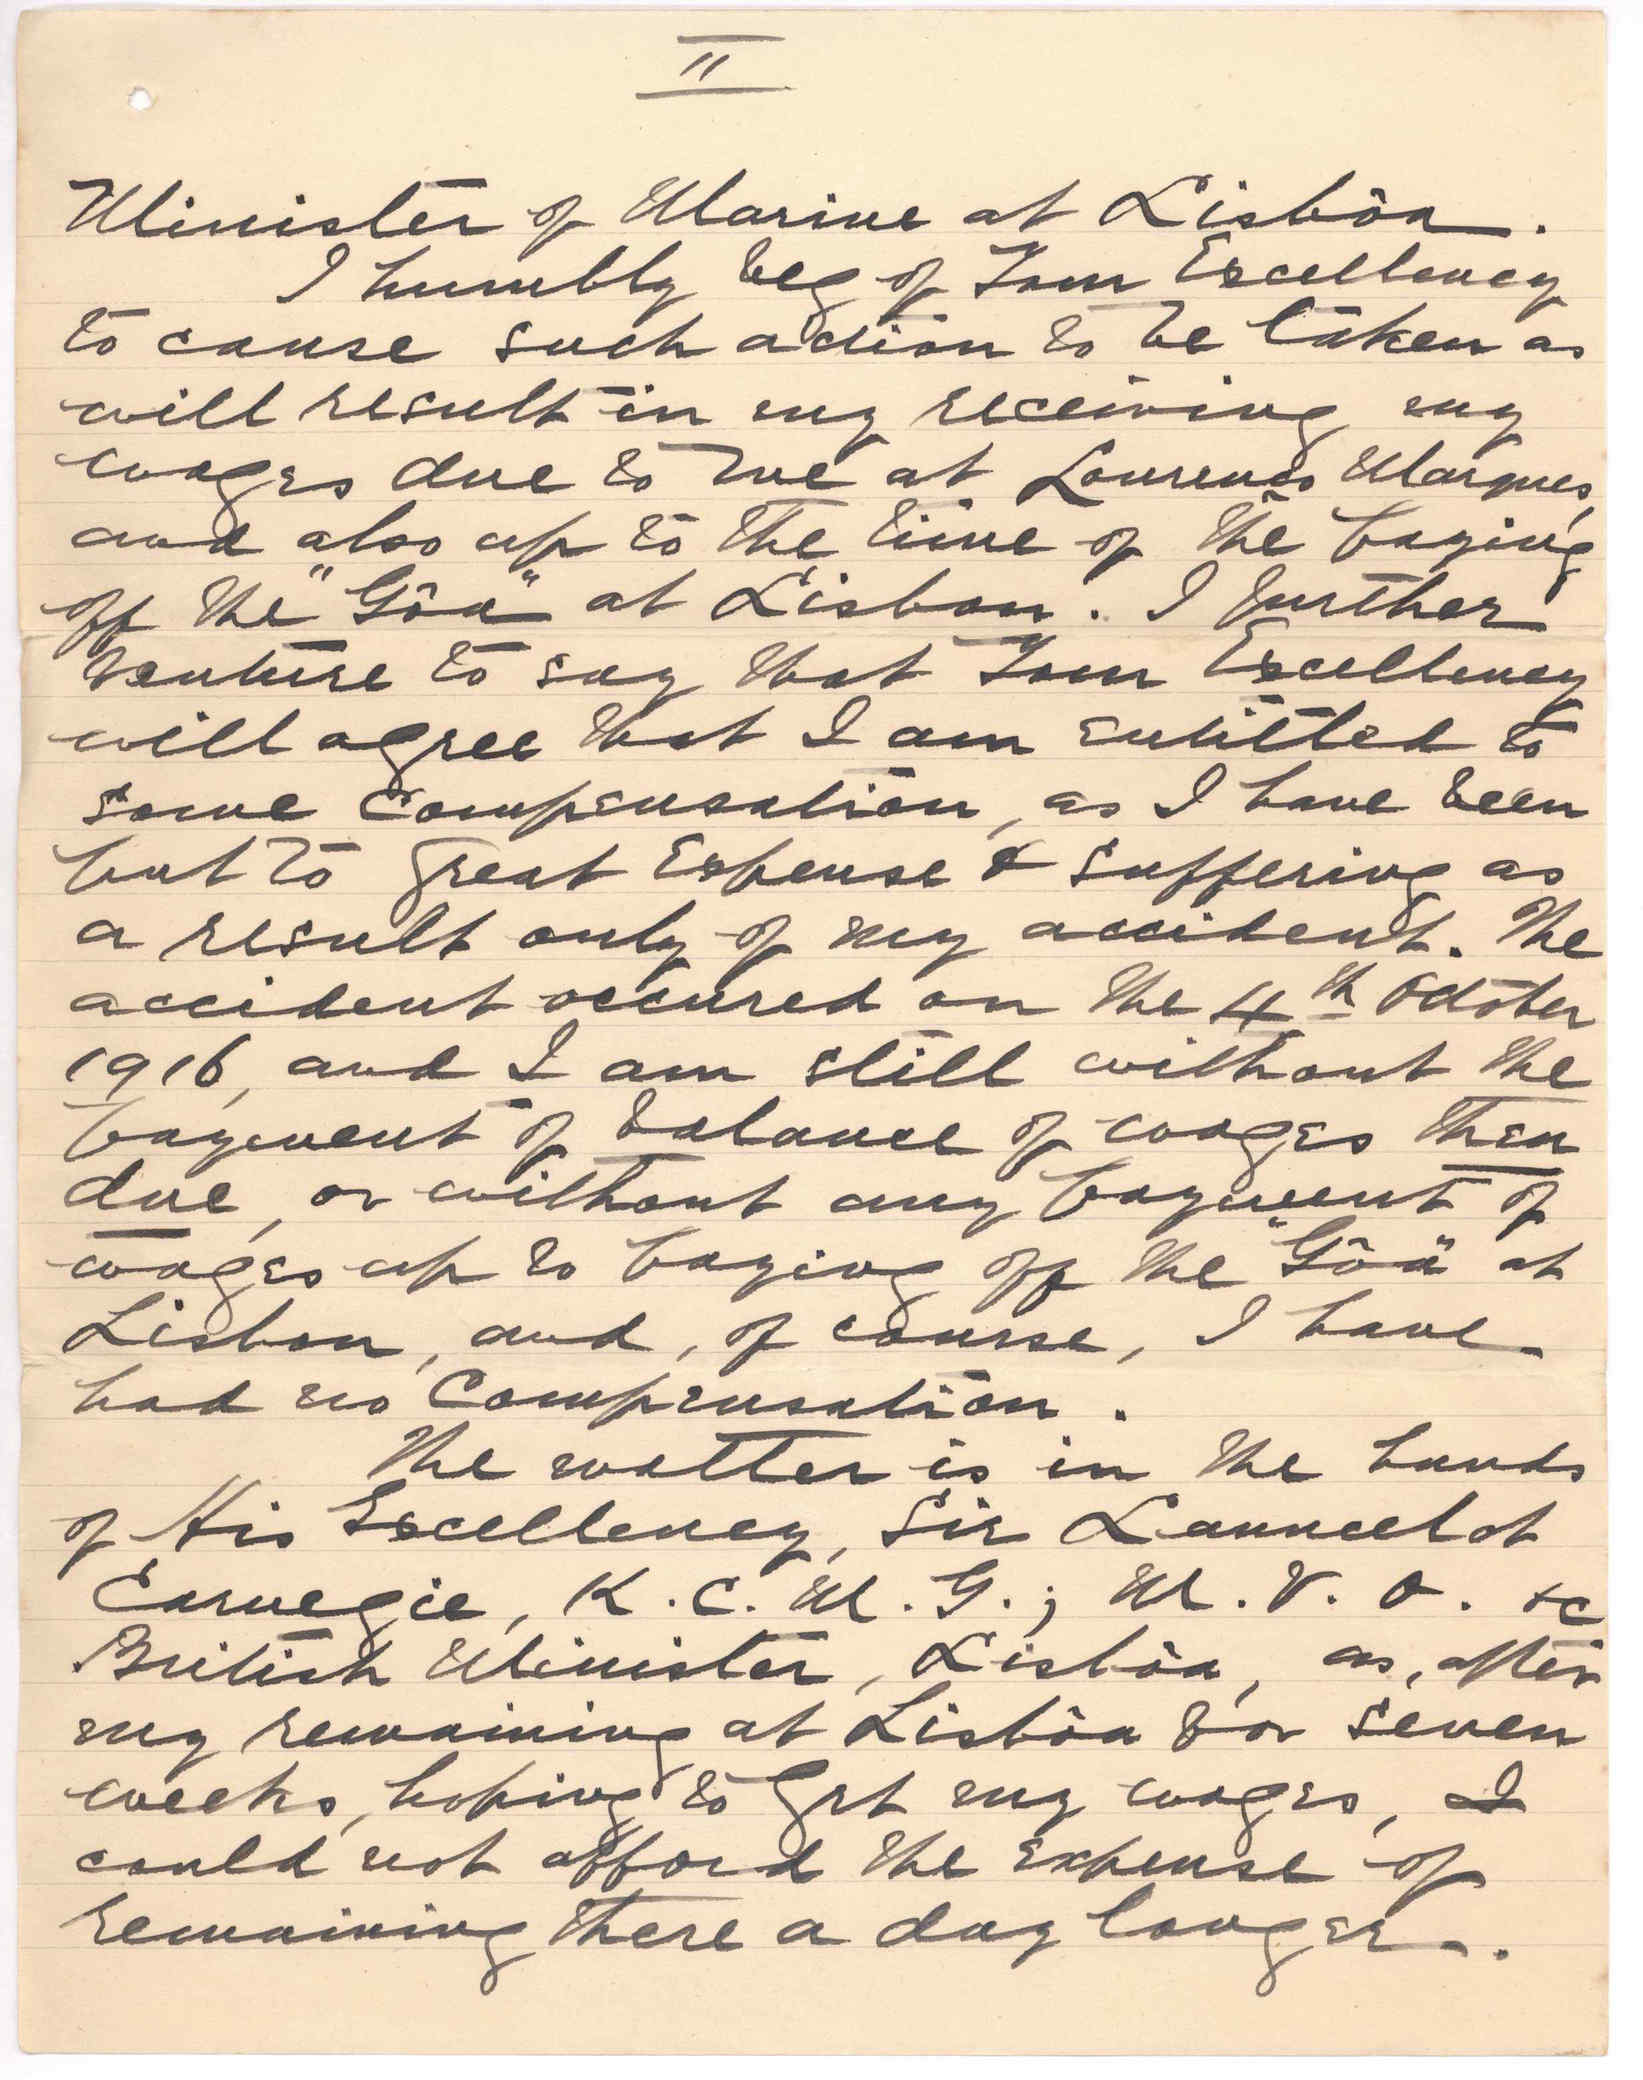 II
Minister of Marine at Lisbôa.
I humbly beg of Your Excellency
to cause such action to be taken as
will result in my receiving my
wages due to me at Lourenço Marques,
and also up to the time of the paying
off the "Gôa" at Lisbon. I further
venture to say that Your Excellency
will agree that I am entitled to
some compensation, as I have been
put to great expense & suffering as
a result only of my accident. The
accident occured on the 4th October
1916, and I am still without the
payment of balance of wages then
due, or without any payment of
wages up to paying off the "Gôa" at
Lisbon, and, of course, I have
had no compensation.
The matter is in the hands
of His Excellency, Sir Launcelot
Carnegie, K.C.M.G.; M.V.O. &c
British Minister, Lisbôa, as, after
my remaining at Lisbôa for seven
weeks, hoping to get my wages, I
could not afford the expense of
remaining there a day longer.